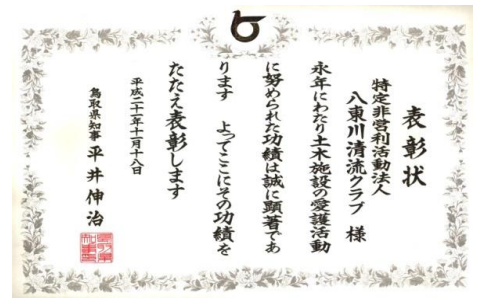 表彰状
特定非営利活動法人
八東川清流クラブ 様
永年にわたり土木施設の愛護活動
に努められた功績は誠に顕著であ
ります よってここにその功績を
たたえ表彰します
平成二十一年十一月十八日
鳥取県知事 平井伸治